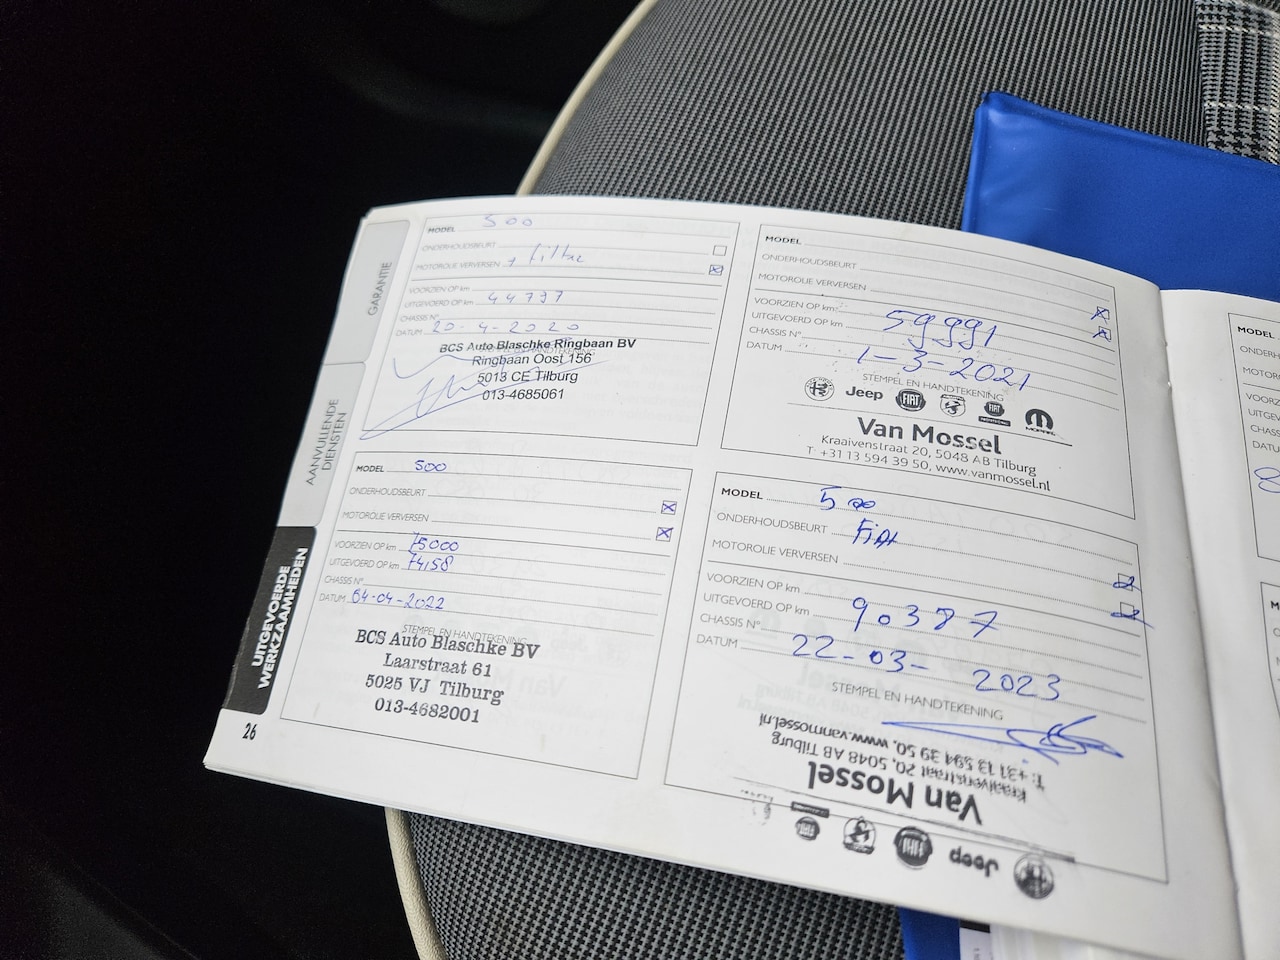 GARANTIE
AANVULLENDE
DIENSTEN
UITGEVOERDE
WERKZAAMHEDEN
26
MODEL 500
ONDERHOUDSBEURT
MOTOROLIE VERVERSEN + filter
VOORZIEN OP km
UITGEVOERD OP km 44797
CHASSIS N°
DATUM 20-4-2020
STEMPEL EN HANDTEKENING
BCS Auto Blaschke Ringbaan BV
Ringbaan Oost 156
5013 CE Tilburg
013-4685061
MODEL 500
ONDERHOUDSBEURT
MOTOROLIE VERVERSEN
VOORZIEN OP km 75000
UITGEVOERD OP km 74,58
CHASSIS N°
DATUM 04-04-2022
STEMPEL EN HANDTEKENING
BCS Auto Blaschke BV
Laarstraat 61
5025 VJ Tilburg
013-4682001
MODEL
ONDERHOUDSBEURT
MOTOROLIE VERVERSEN
VOORZIEN OP km
UITGEVOERD OP km 59991
CHASSIS N°
DATUM 1-3-2021
STEMPEL EN HANDTEKENING
Jeep FIAT FIAT MOPAR
Van Mossel
Kraaivenstraat 20, 5048 AB Tilburg
T +31 13 594 39 50, www.vanmossel.nl
MODEL 500
ONDERHOUDSBEURT Fiat
MOTOROLIE VERVERSEN
VOORZIEN OP km
UITGEVOERD OP km 90387
CHASSIS N°
DATUM 22-03-2023
STEMPEL EN HANDTEKENING
Jeep FIAT
Van Mossel
Kraaivenstraat 20, 5048 AB Tilburg
T: +31 13 594 39 50, www.vanmossel.nl
MODEL